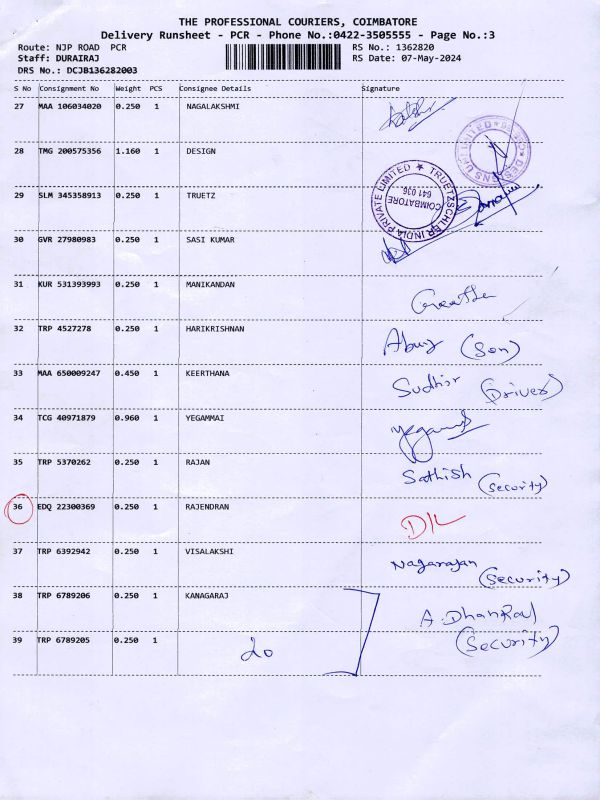 THE PROFESSIONAL COURIERS, COIMBATORE
Delivery Runsheet - PCR - Phone No.:0422-3505555 - Page No.:3
Route: NJP ROAD PCR RS No.: 1362820
Staff: DURAIRAJ RS Date: 07-May-2024
DRS No.: DCJB136282003
S No Consignment No Weight PCS Consignee Details Signature
27 MAA 106034020 0.250 1 NAGALAKSHMI
28 TMG 200575356 1.160 1 DESIGN
DESIGNS UP LIMITED
29 SLM 345358913 0.250 1 TRUETZ
TRUETZSCHLER INDIA PRIVATE LIMITED
COIMBATORE
641 036
30 GVR 27980983 0.250 1 SASI KUMAR
31 KUR 531393993 0.250 1 MANIKANDAN
32 TRP 4527278 0.250 1 HARIKRISHNAN
(Son)
33 MAA 650009247 0.450 1 KEERTHANA
Sudhir (Driver)
34 TCG 40971879 0.960 1 YEGAMMAI
35 TRP 5370262 0.250 1 RAJAN
Sathish (Security)
36 EDQ 22300369 0.250 1 RAJENDRAN
D/L
37 TRP 6392942 0.250 1 VISALAKSHI
Nagarajan (Security)
38 TRP 6789206 0.250 1 KANAGARAJ
A. DhanRaj
39 TRP 6789205 0.250 1 20 (Security)